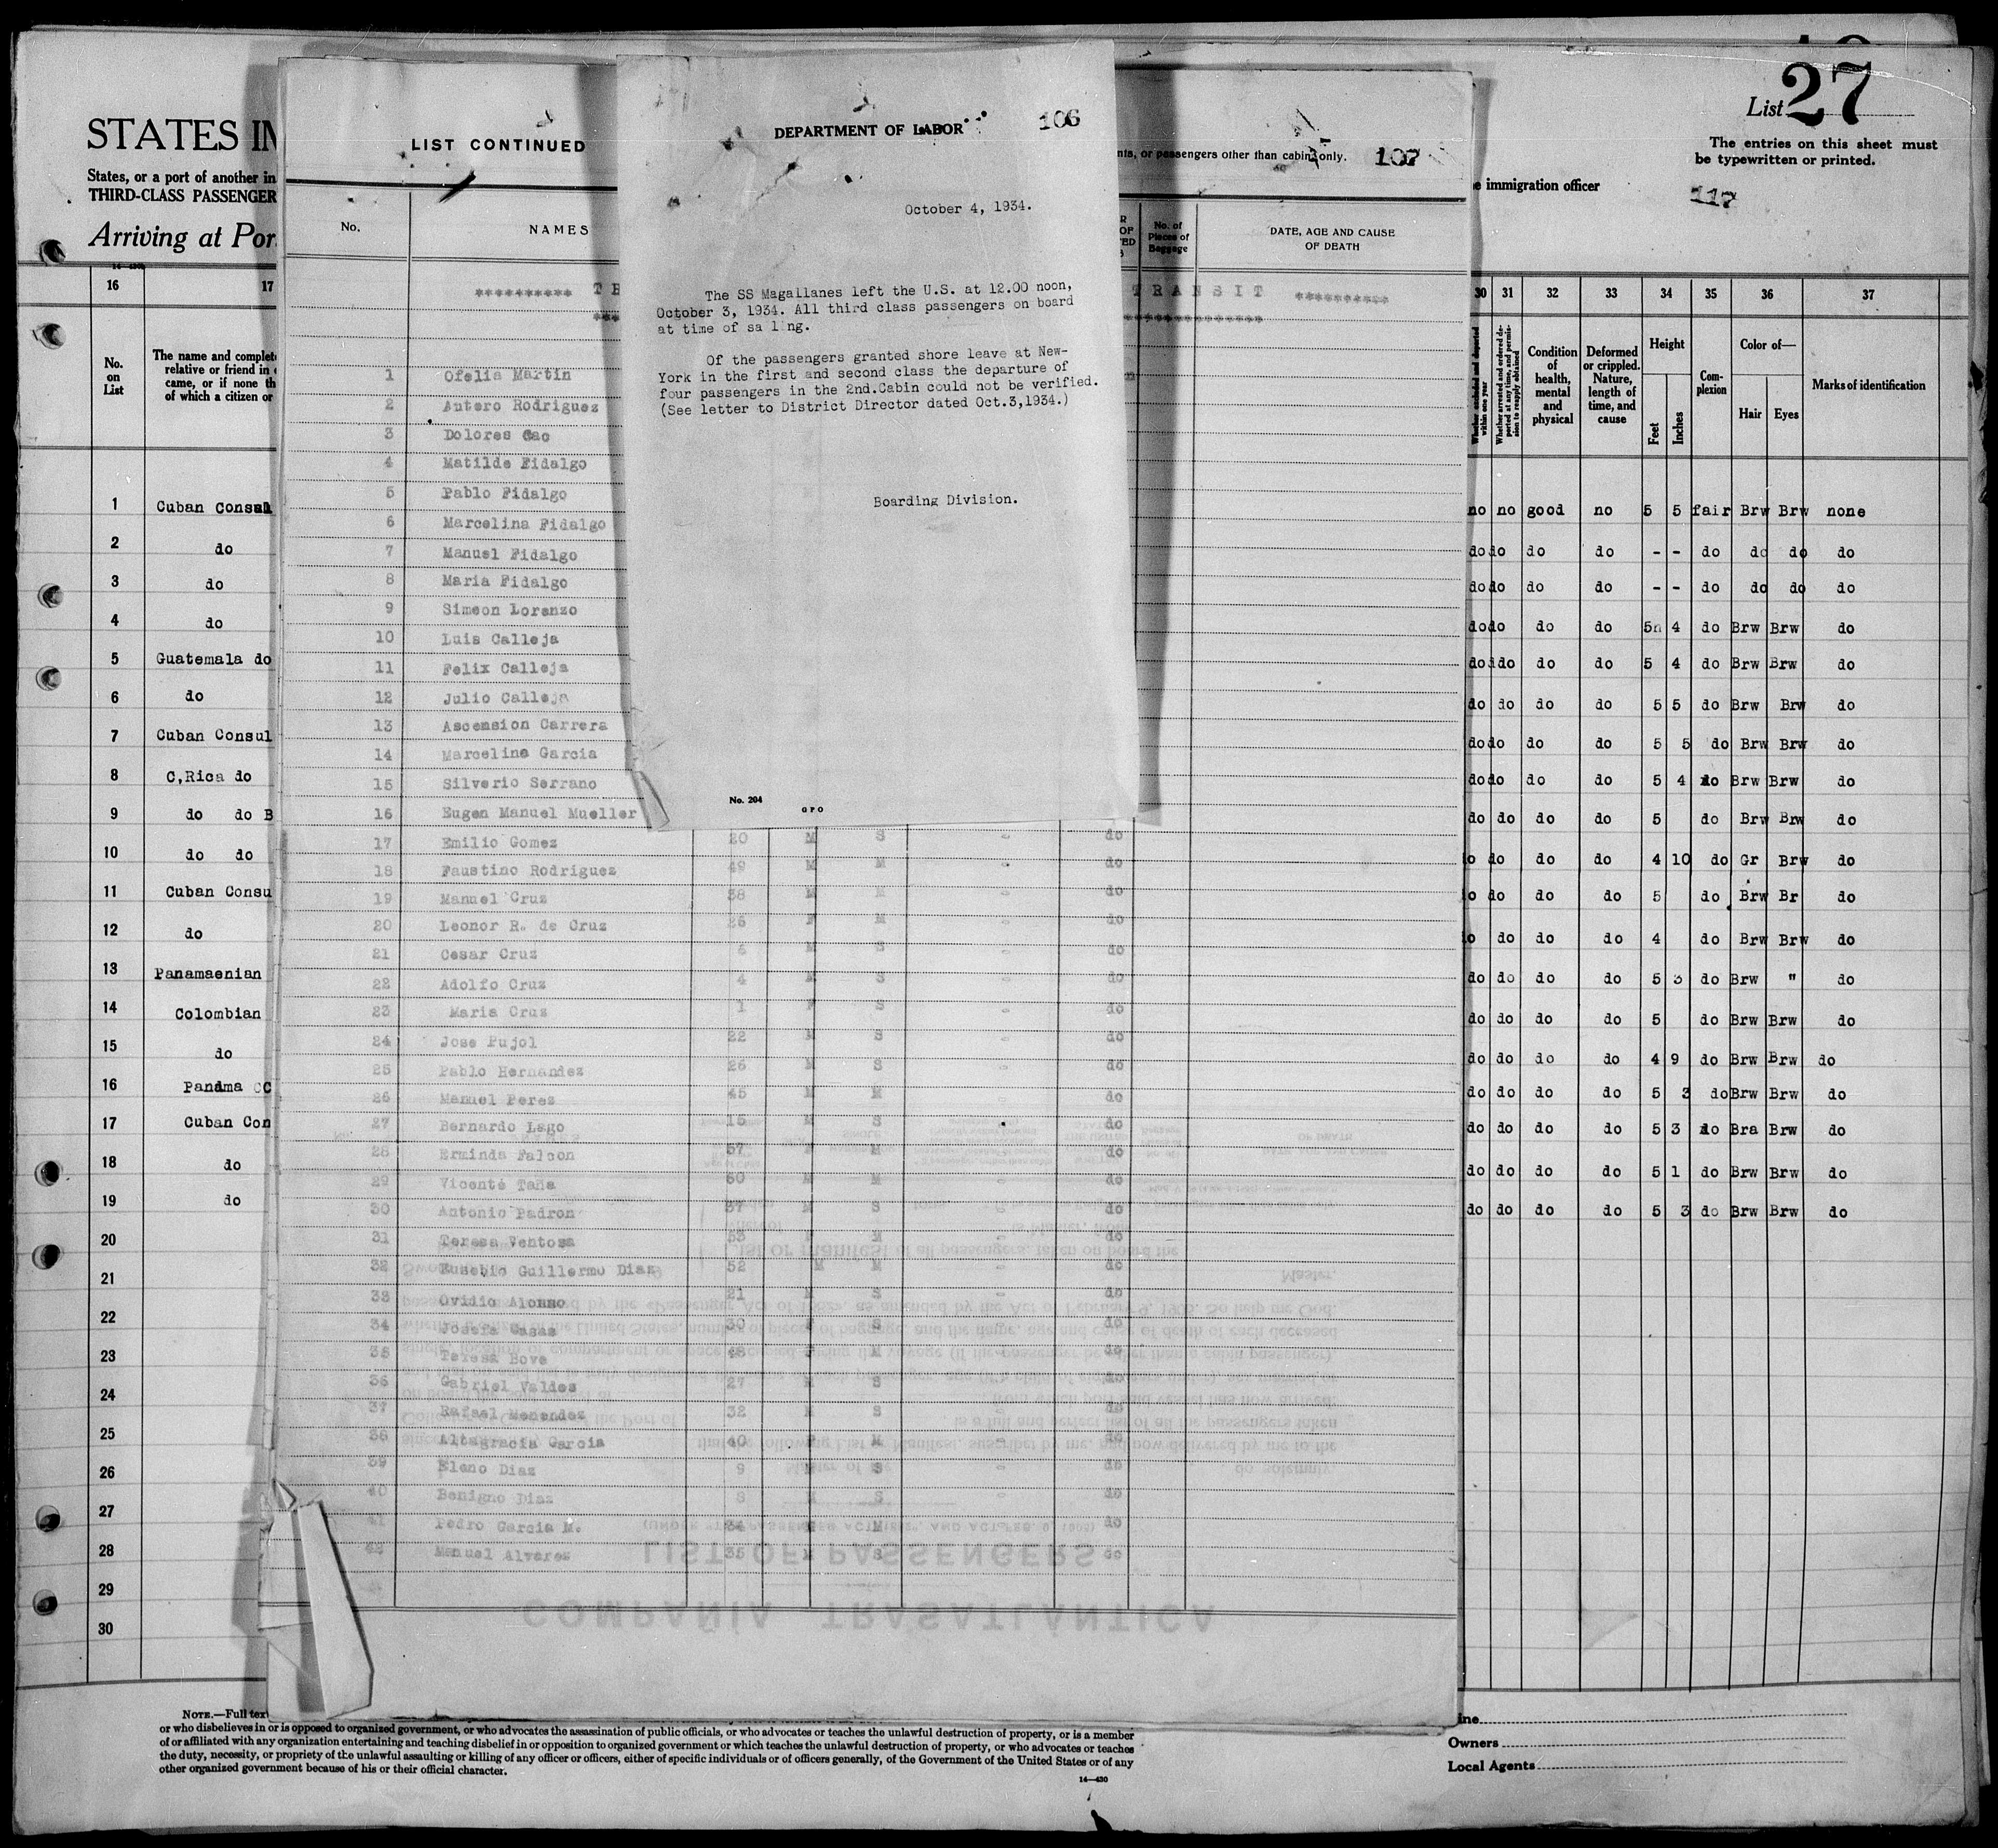 List 27
The entries on this sheet must
be typewritten or printed.
immigration officer
117
STATES
States, or a port of another
THIRD-CLASS PASSENGER
Arriving at
LIST CONTINUED
or passengers other than cabin only. 107
DEPARTMENT OF LABOR 106
October 4, 1934.
The SS Magallanes left the U.S. at 12.00 noon,
October 3, 1934. All third class passengers on board
at time of sa l ng.
Of the passengers granted shore leave at New-
York in the first and second class the departure of
four passengers in the 2nd.Cabin could not be verified.
(See letter to District Director dated Oct.3,1934.)
Boarding Division.
No. 204 GPO
No. NAMES No. of Pieces of Baggage DATE, AGE AND CAUSE OF DEATH
********** TRANSIT **********
1 Ofelia Martin
2 Antero Rodriguez
3 Dolores Cao
4 Matilde Fidalgo
5 Pablo Fidalgo
6 Marcelina Fidalgo
7 Manuel Fidalgo
8 Maria Fidalgo
9 Simeon Lorenzo
10 Luis Calleja
11 Felix Calleja
12 Julio Calleja
13 Ascension Carrera
14 Marceline Garcia
15 Silverio Serrano
16 Eugen Manuel Mueller
17 Emilio Gomez 20 M S - do
18 Faustino Rodriguez 49 M M - do
19 Manuel Cruz 38 M M - do
20 Leonor R. de Cruz 26 F M - do
21 Cesar Cruz 6 M S - do
22 Adolfo Cruz 4 M S - do
23 Maria Cruz 1 F S - do
24 Jose Pujol 22 M S - do
25 Pablo Hernandez 26 M S - do
26 Manuel Perez 45 M M - do
27 Bernardo Lago 15 M S do
28 Erminda Falcon 57 M do
29 Vicente Taña 60 M M - do
30 Antonio Padron 37 M S do
31 Teresa Ventosa 53 M do
32 Eusebio Guillermo Diaz 52 M M - do
33 Ovidio Alonso 21 S do
34 Casas 30 S do
35 Teresa Bove 48 M do
36 Gabriel Valdes 27 M S do
37 Rafael Menendez 32 M S do
38 Altagracia Garcia 40 M do
39 Eleno Diaz 9 S - do
40 Benigno Diaz 8 M S - do
41 Pedro Garcia M. 34 M do
42 Manuel Alvarez 35 M S do
LIST OF PASSENGERS
COMPAÑIA TRASATLANTICA
16 17
No. on List
The name and complete
relative or friend in
came, or if none
of which a citizen or
1 Cuban Consul
2 do
3 do
4 do
5 Guatemala do
6 do
7 Cuban Consul
8 C,Rica do
9 do do B
10 do do
11 Cuban Consu
12 do
13 Panamaenian
14 Colombian
15 do
16 Panama
17 Cuban Con
18 do
19 do
20
21
22
23
24
25
26
27
28
29
30
30 31 32 33 34 35 36 37
Condition of health, mental and physical
Deformed or crippled. Nature, length of time, and cause
Height
Feet Inches
Complexion
Color of—
Hair Eyes
Marks of identification
no no good no 5 5 fair Brw Brw none
do do do do - - do do do do
do do do do - - do do do do
do do do do 5 4 do Brw Brw do
do do do do 5 4 do Brw Brw do
do do do do 5 5 do Brw Brw do
do do do do 5 5 do Brw Brw do
do do do do 5 4 do Brw Brw do
do do do do 5 do Brw Brw do
do do do do 4 10 do Gr Brw do
do do do do 5 do Brw Br do
do do do 4 do Brw Brw do
do do do do 5 3 do Brw " do
do do do do 5 do Brw Brw do
do do do do 4 9 do Brw Brw do
do do do do 5 3 do Brw Brw do
do do do do 5 3 do Bra Brw do
do do do do 5 1 do Brw Brw do
do do do do 5 3 do Brw Brw do
NOTE.—Full
or who disbelieves in or is opposed to organized government, or who advocates the assassination of public officials, or who advocates or teaches the unlawful destruction of property, or is a member
of or affiliated with any organization entertaining and teaching disbelief in or opposition to organized government or which teaches the unlawful destruction of property, or who advocates or teaches
the duty, necessity, or propriety of the unlawful assaulting or killing of any officer or officers, either of specific individuals or of officers generally, of the Government of the United States or of any
other organized government because of his or their official character.
14—430
Owners
Local Agents